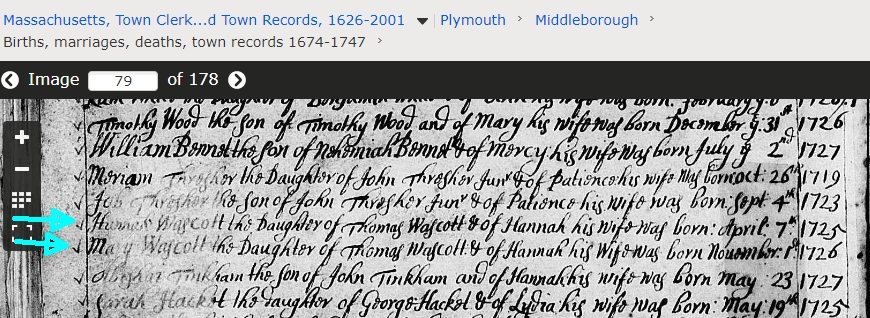 Massachusetts, Town Clerk...d Town Records, 1626-2001 Plymouth › Middleborough ›
Births, marriages, deaths, town records 1674-1747 ›
Image 79 of 178
the Daughter of Benjamin his wife was born: February
Timothy Wood the Son of Timothy Wood and of Mary his wife was born December ye: 31st 1726
William Bennet the Son of Nehemiah Bennet & of Mercy his Wife was born July ye 2nd 1727
Meriam Thresher the Daughter of John Thresher Junr & of Patience his wife was born oct: 26th 1719
Job Thresher the son of John Thresher Junr & of Patience his wife was born: Sept 4th 1723
Hannah Wascott the Daughter of Thomas Wascott & of Hannah his wife was born: April: 7th 1725
Mary Wascott the Daughter of Thomas Wascott & of Hannah his Wife was born November: 1st
Tinkham the son of John Tinkham and of Hannah his wife was born May 23 1727
Sarah Hacket the Daughter of George Hacket & of Lydia his wife was born: May: 19th 1725